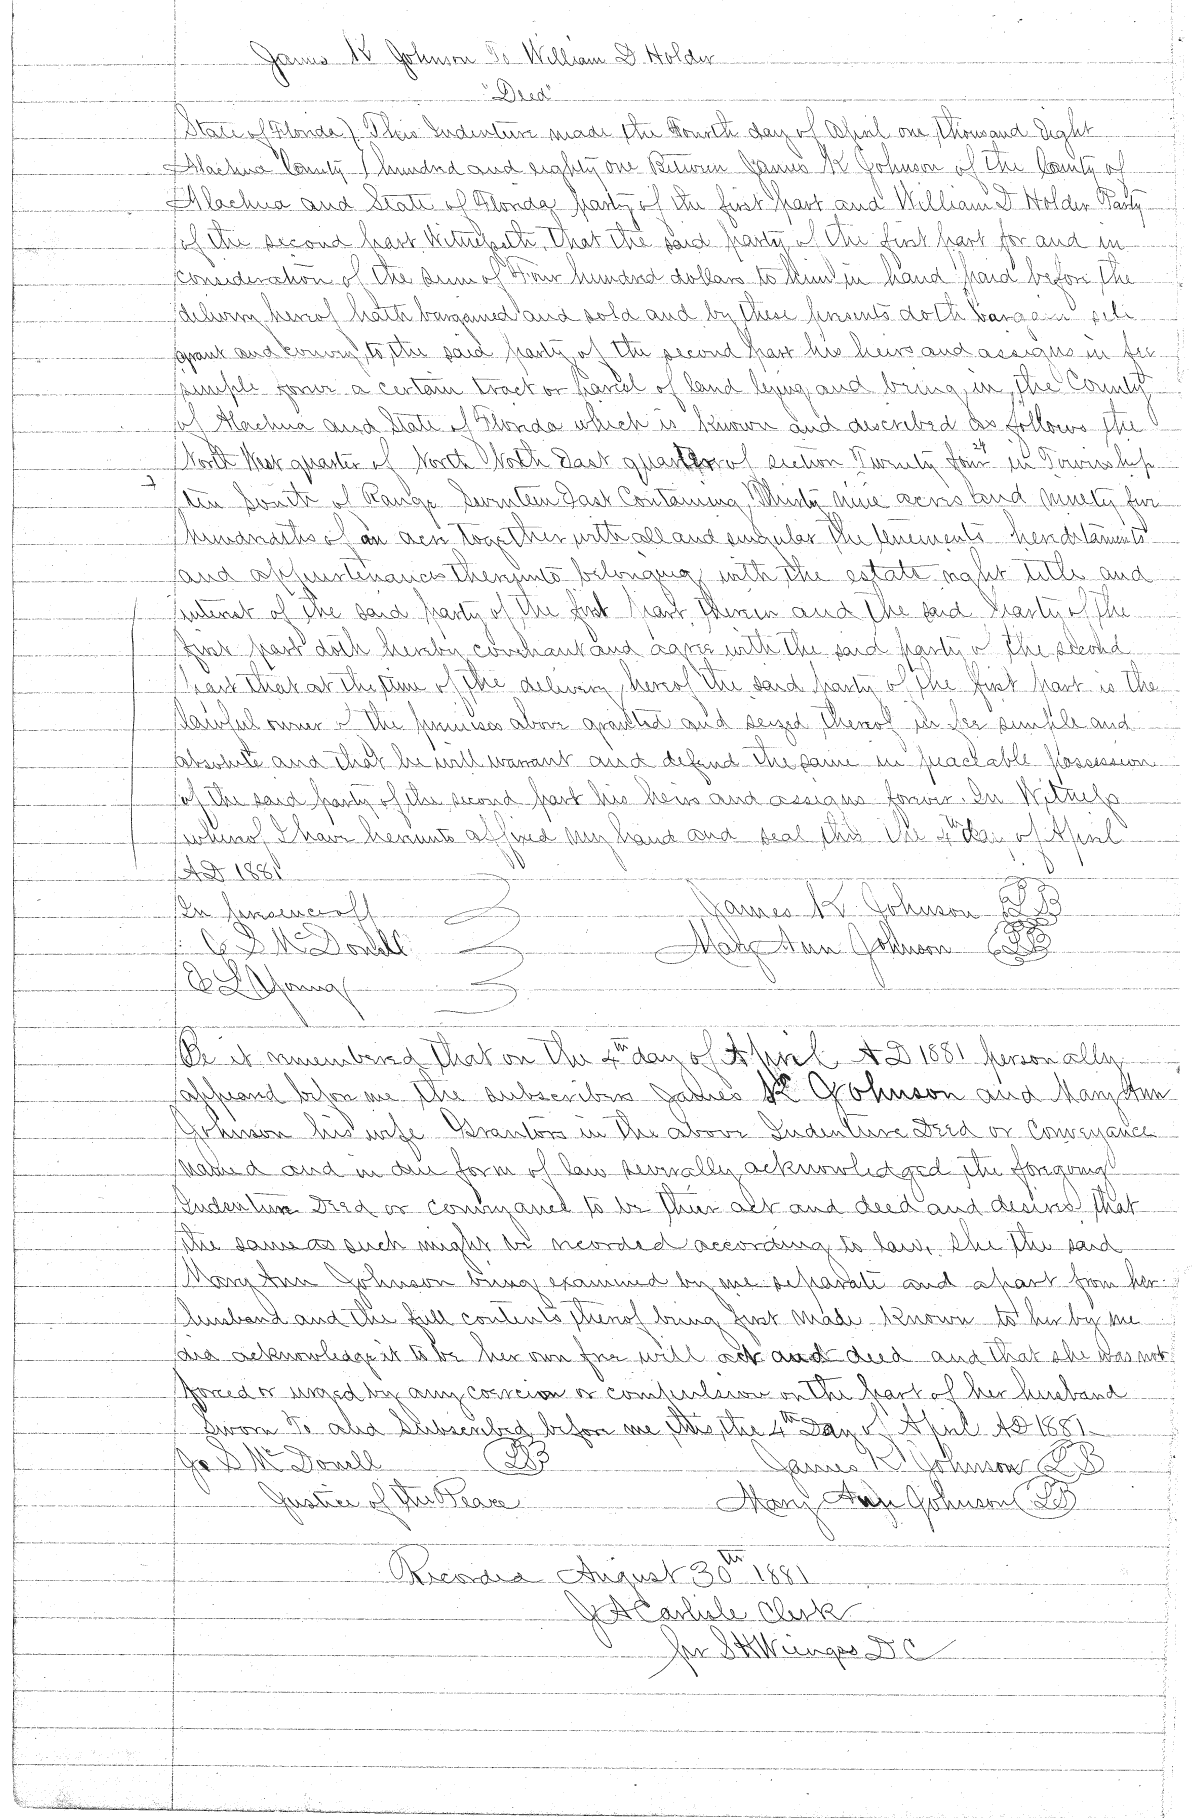 James K Johnson To William D Holder
"Deed"
State of Florida } This Indenture made the Fourth day of April one thousand Eight
Alachua County } hundred and eighty one Between James K Johnson of the County of
Alachua and State of Florida party of the first part and William D Holder Party
of the second part Witnesseth, that the said party of the first part for and in
consideration of the sum of Four hundred dollars to him in hand paid before the
delivery hereof hath bargained and sold and by these presents doth bargain sell
grant and convey to the said party of the second part his heirs and assigns in fee
simple forever a certain tract or parcel of land lying and being in the County
of Alachua and State of Florida which is known and described as follows the
North West quarter of North North East quarter of section Twenty four 24 in Township
ten South of Range Seventeen East Containing Thirty nine acres and ninety five
hundredths of an acre together with all and singular the tenements hereditaments
and appurtenances thereunto belonging with the estate right title and
interest of the said party of the first part therein and the said Party of the
first part doth hereby covenant and agree with the said party of the second
part that at the time of the delivery hereof the said party of the first part is the
lawful owner of the premises above granted and seized thereof in fee simple and
absolute and that he will warrant and defend the same in peaceable possession
of the said party of the second part his heirs and assigns forever. In Witness
whereof I have hereunto affixed my hand and seal this the 4th day of April
AD 1881
In presence off James K Johnson LS
McDonell Mary Ann Johnson LS
L Young
Be it remembered that on the 4th day of April AD 1881 personally
appeared before me the subscribers James K Johnson and Mary Ann
Johnson his wife Grantors in the above Indenture Deed or Conveyance
named and in due form of law severally acknowledged the foregoing
Indenture Deed or conveyance to be their act and deed and desired that
the same as such might be recorded according to law, She the said
Mary Ann Johnson being examined by me separate and apart from her
husband and the full contents thereof being first made known to her by me
did acknowledge it to be her own free will act and deed and that she was not
forced or urged by any coercion or compulsion on the part of her husband
Sworn To and Subscribed before me this, the 4th Day of April AD 1881
S McDonell LS James K Johnson LS
Justice of the Peace Mary Ann Johnson LS
Recorded August 30th 1881
J A Carlisle Clerk
per S H Wienges D C